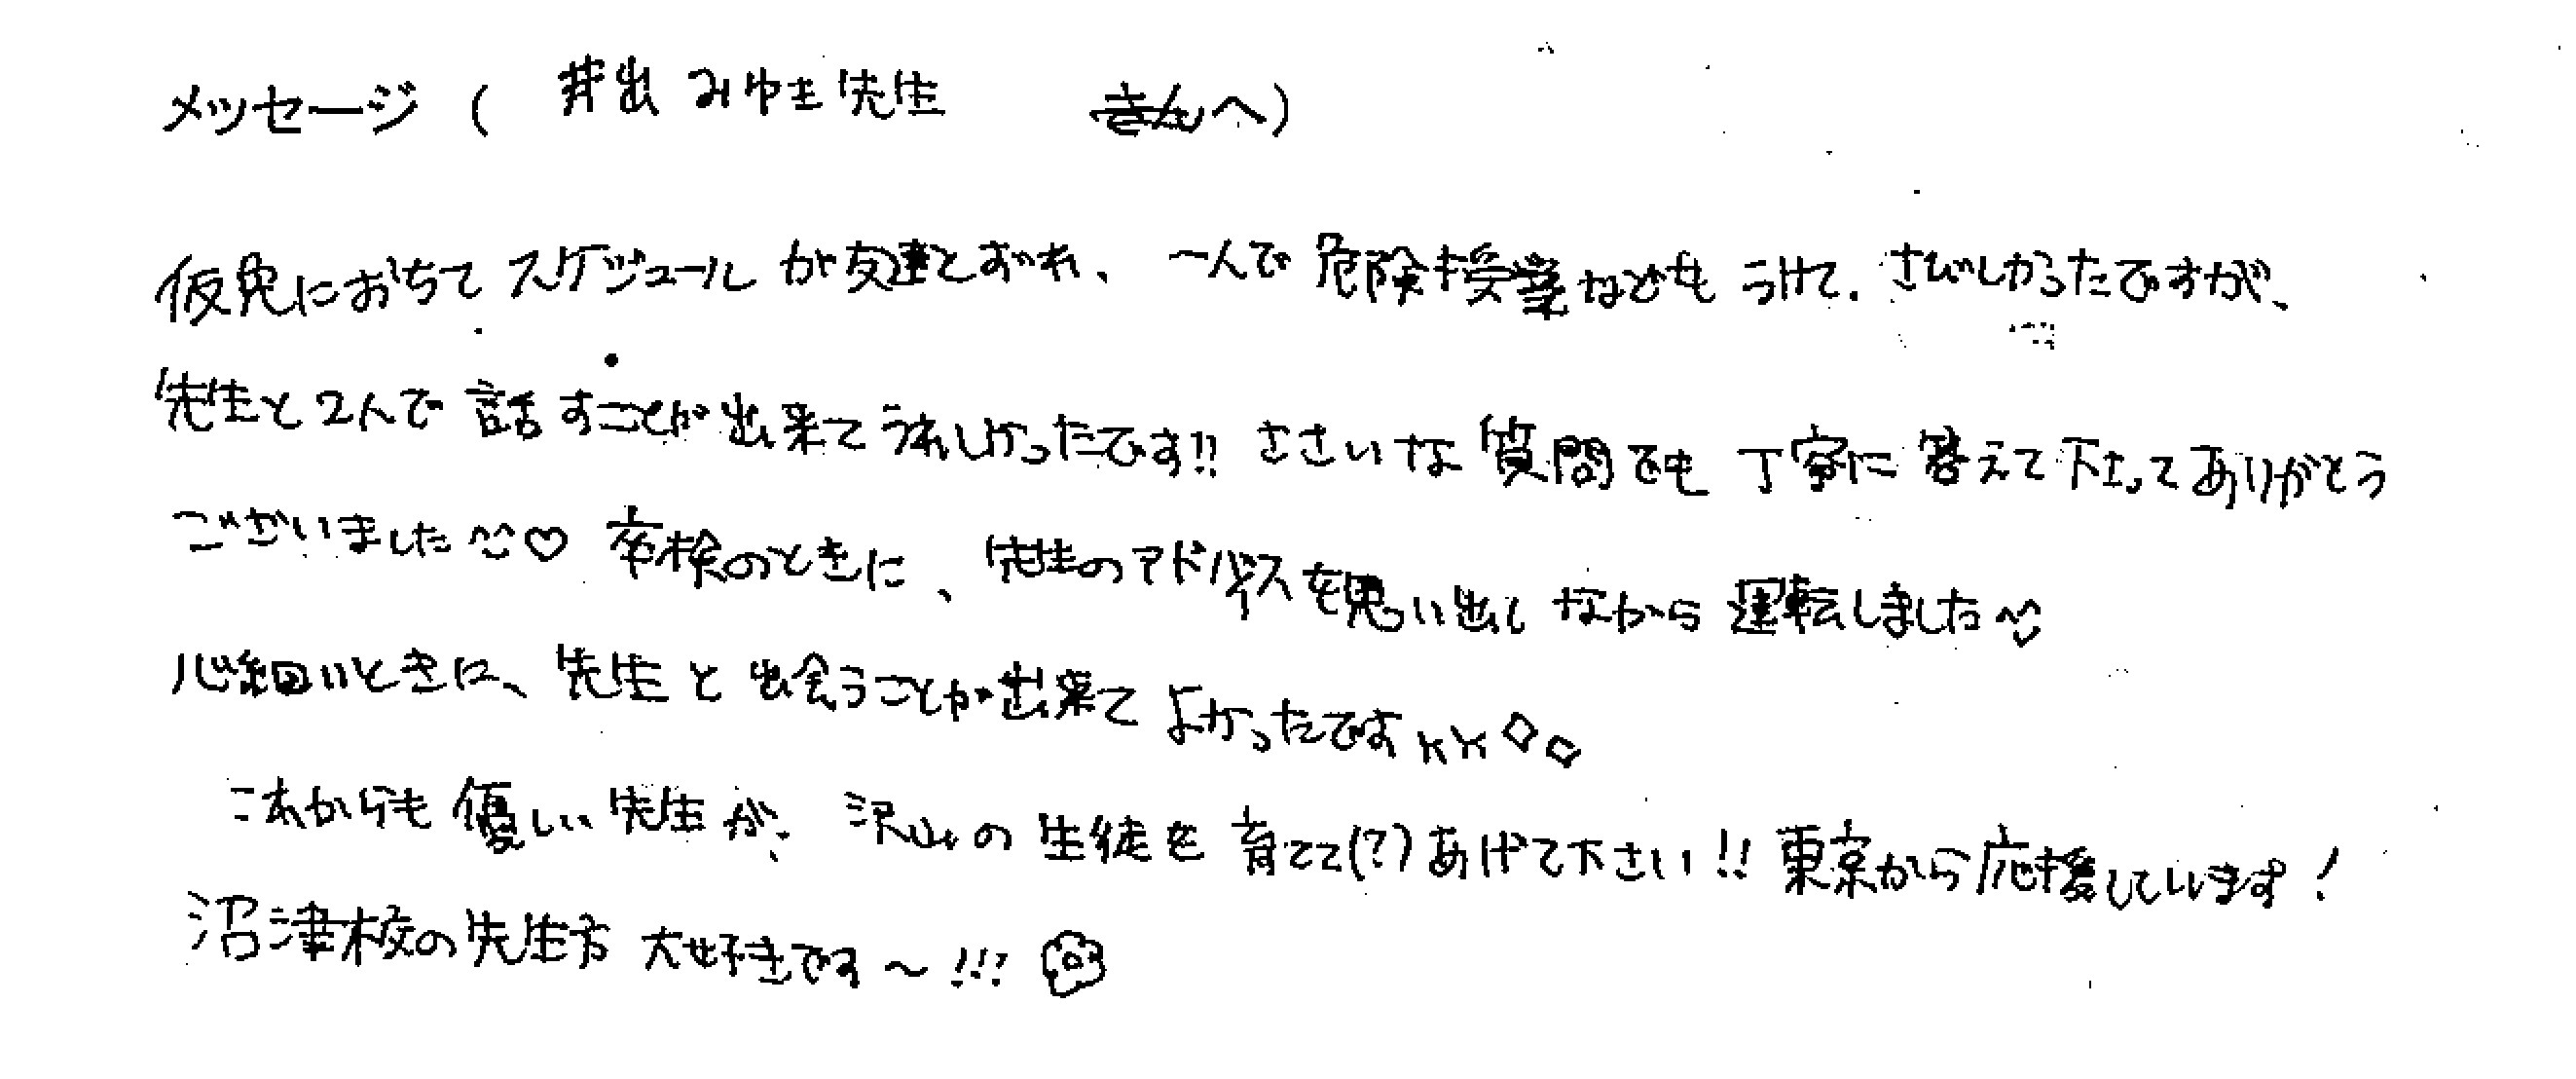 メッセージ（ 井出みゆき先生 さんへ）
仮免におちてスケジュールが友達とずれ、一人で危険授業などもうけて、さびしかったですが、
先生と2人で話すことが出来てうれしかったです!! ささいな質問でも丁寧に答えて下さってありがとう
ございました♡ 卒検のときに、先生のアドバイスを思い出しながら運転しました
心細いときに、先生と出会うことが出来てよかったです
これからも優しい先生が、沢山の生徒を育てて(?)あげて下さい!! 東京から応援しています!
沼津校の先生方大好きです～!!!